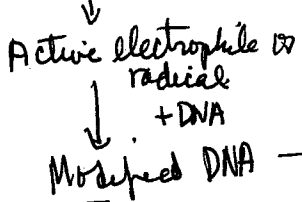 ↓
Active electrophile or
radical
↓ +DNA
Modified DNA –